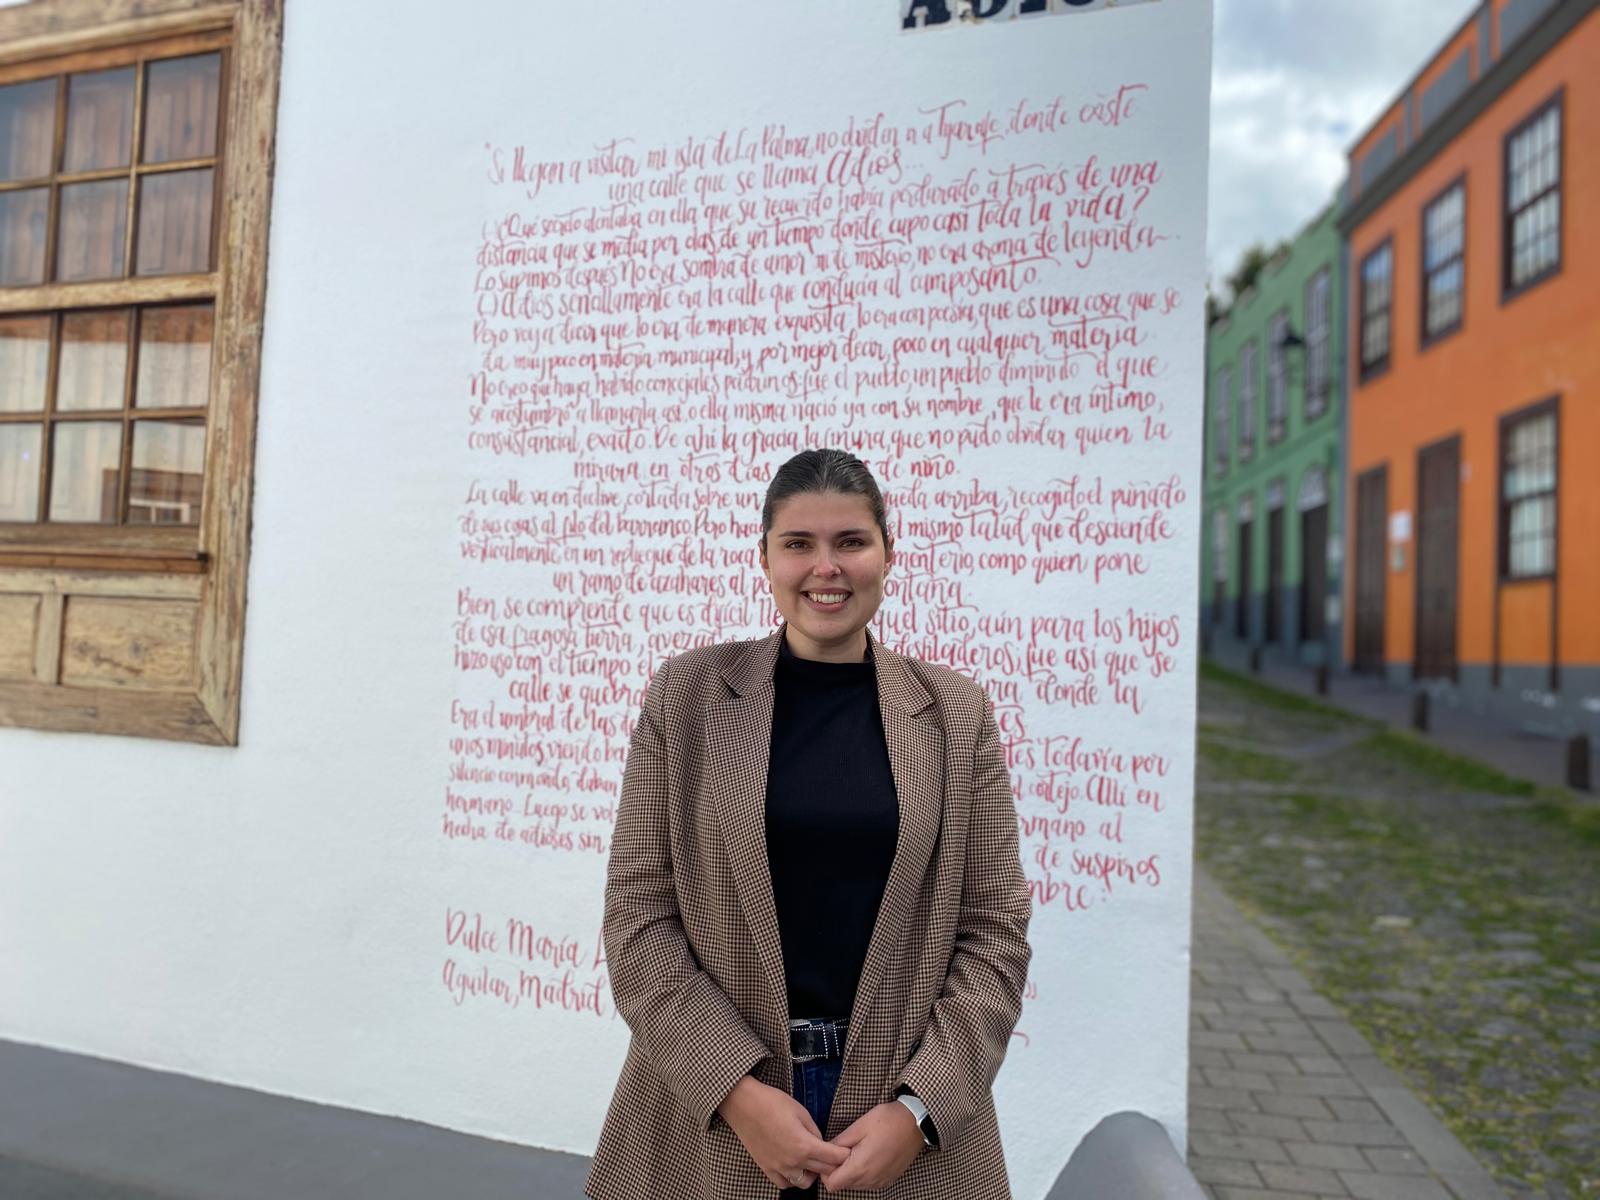 ADIÓS
"Si llegan a visitar mi isla de La Palma, no duden ir a Tijarafe, donde existe
una calle que se llama Adiós...
(...) ¿Qué secreto alentaba en ella que su recuerdo había perdurado a través de una
distancia que se medía por olas, de un tiempo donde cupo casi toda la vida?
Lo supimos después. No era sombra de amor ni de misterio, no era aroma de leyenda...
(...) Adiós sencillamente era la calle que conducía al camposanto.
Pero voy a decir que lo era de manera exquisita, lo era con poesía, que es una cosa que se
da muy poco en materia municipal, y por mejor decir, poco en cualquier materia.
No creo que haya habido concejales padrinos: fue el pueblo, un pueblo diminuto el que
se acostumbró a llamarla así, o ella misma nació ya con su nombre, que le era íntimo,
consustancial, exacto. De ahí la gracia, la finura, que no pudo olvidar quien la
mirara en otros días de niño.
La calle va en declive, cortada sobre un queda arriba, recogido el puñado
de sus cosas al filo del barranco. Pero hacia el mismo talud que desciende
verticalmente en un repliegue de la roca como quien pone
un ramo de azahares al
Bien se comprende que es difícil sitio, aún para los hijos
de esa fragosa tierra, desfiladeros, fue así que se
hizo uso con el tiempo donde la
calle se
Era el umbral de las
unos minutos viendo todavía por
silencio conmovido, daban cortejo. Allí en
hermano. Luego se hermano al
hecha de adioses sin de suspiros
Dulce María
Aguilar, Madrid